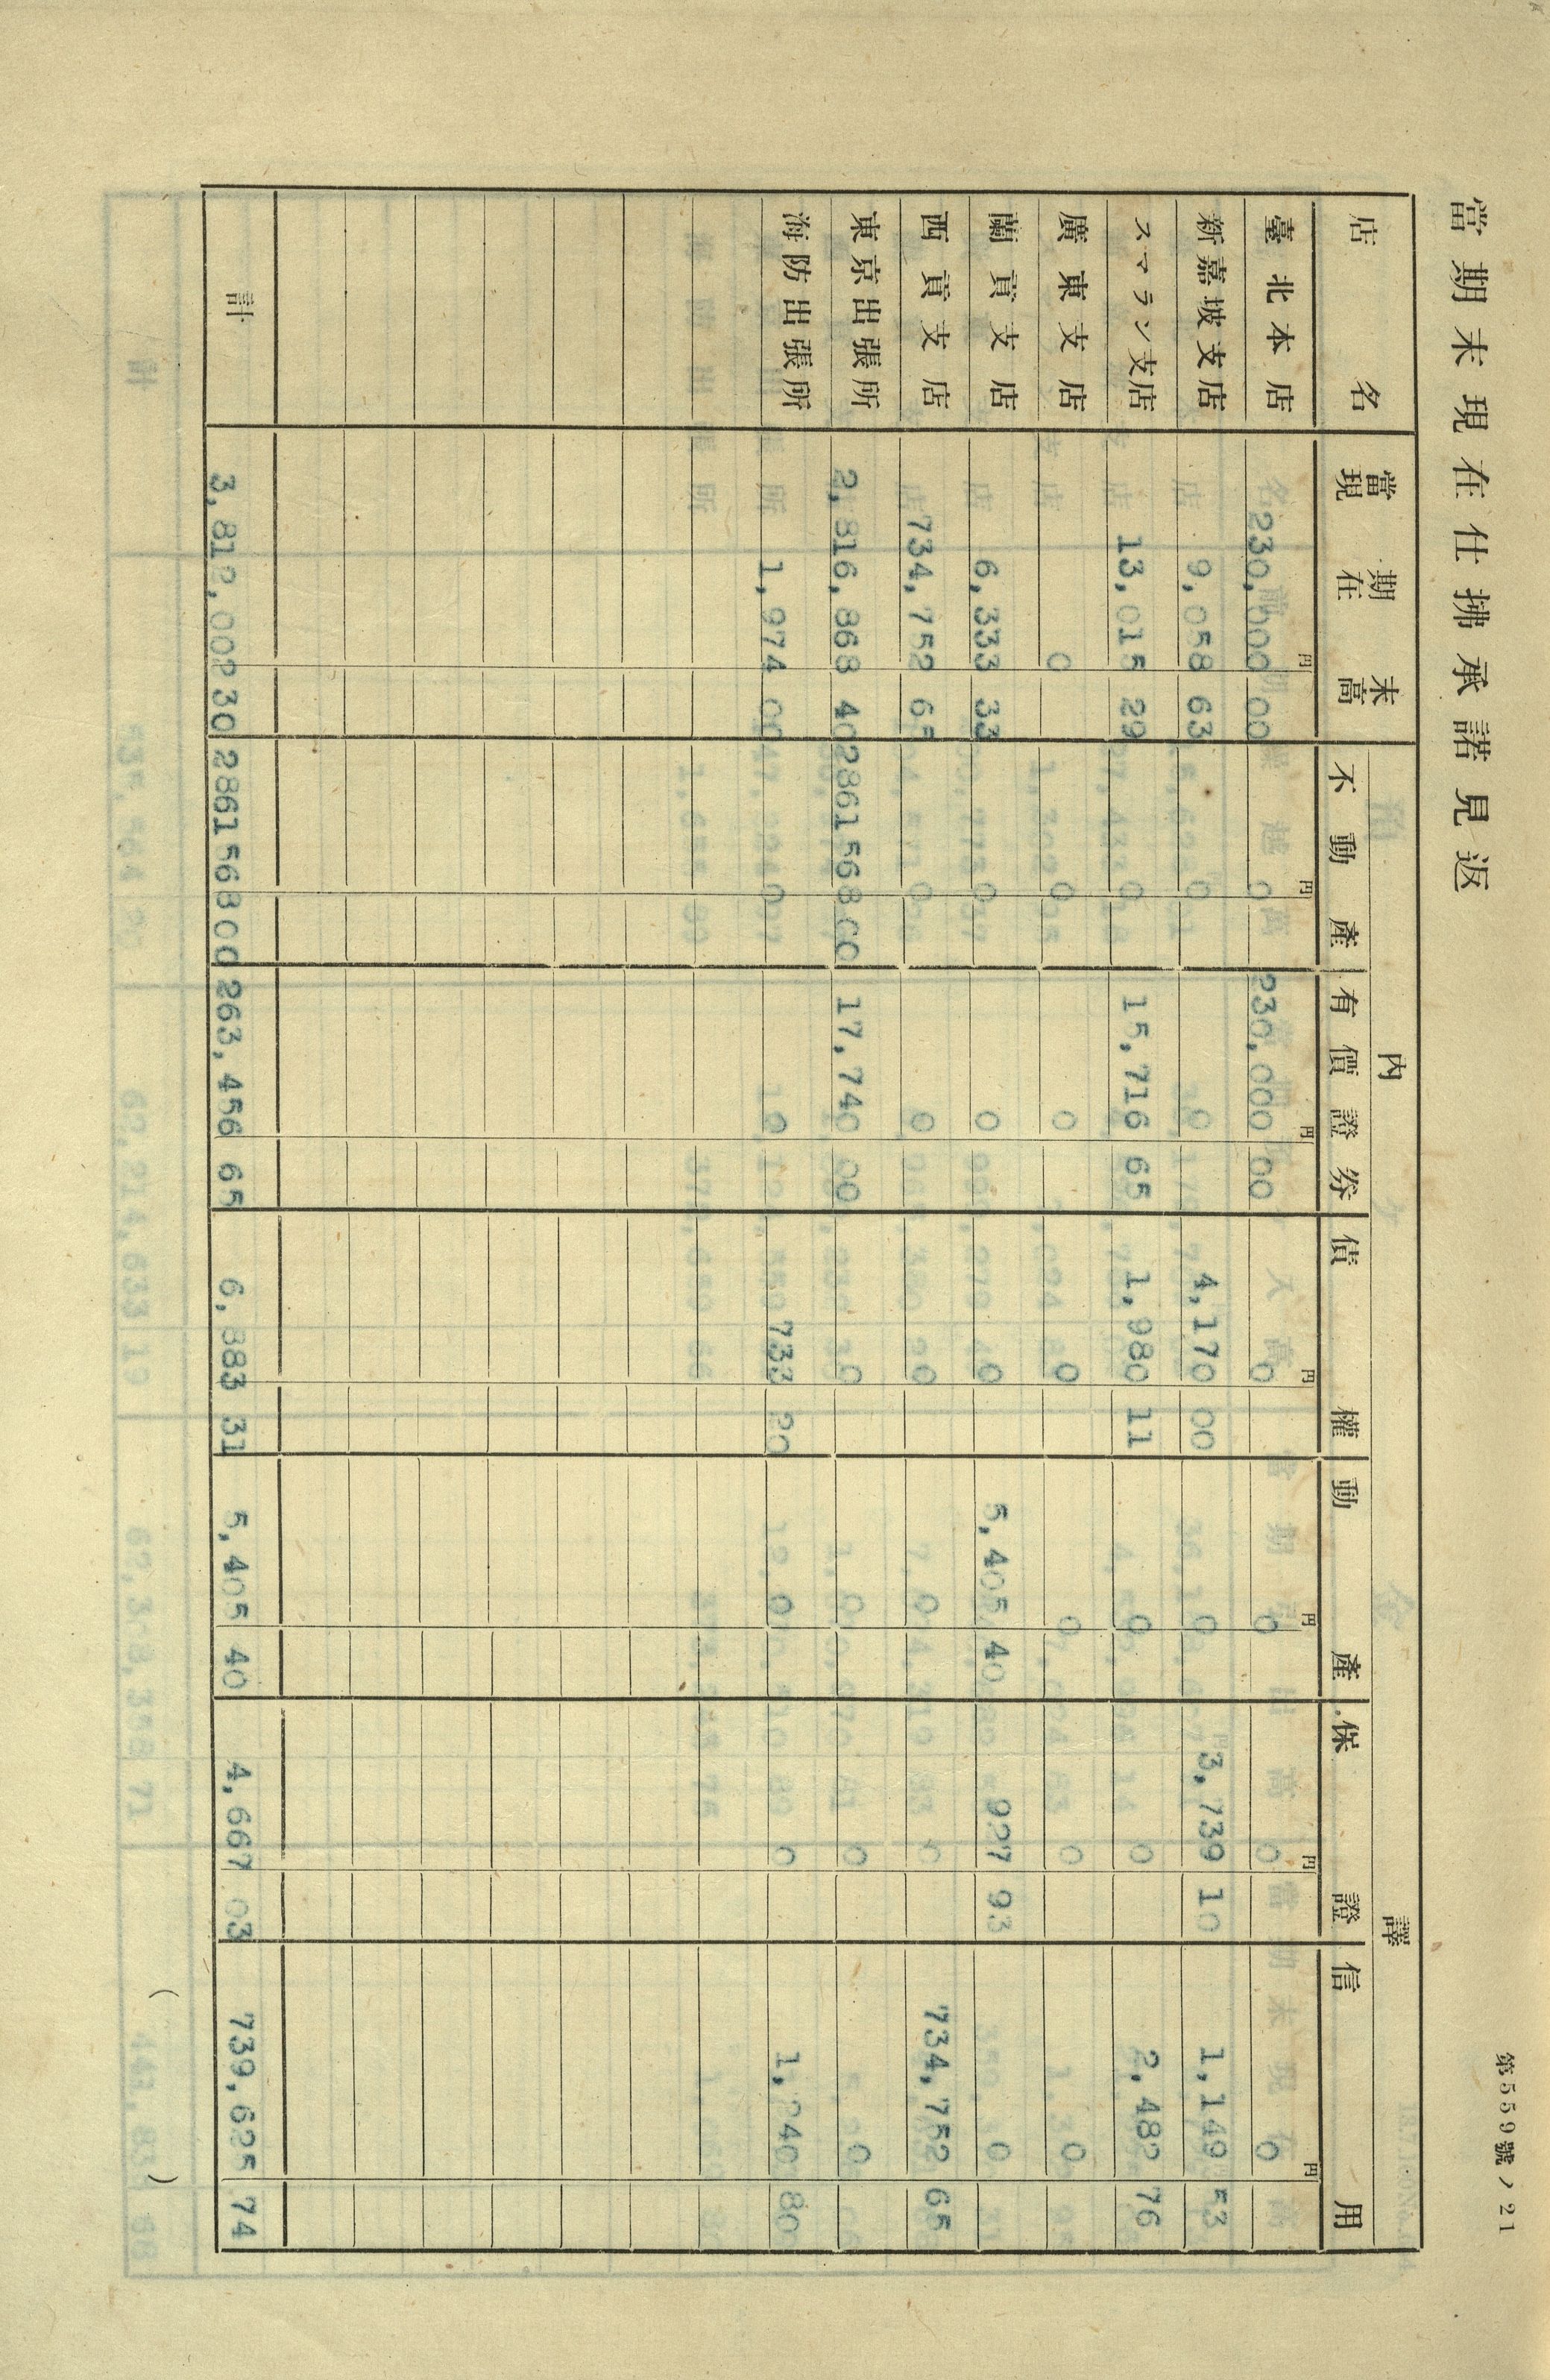 第559號ノ21
當期末現在仕拂承諾見返
店名 當期末現在高 內譯
不動產 有價證券 債權 動產 保證 信用
円 円 円 円 円 円 円
臺北本店 230,000 00 0 230,000 00 0 0 0 0
新嘉坡支店 9,058 63 0 0 4,170 00 0 3,739 10 1,149 53
スマラン支店 13,015 29 0 15,716 65 1,980 11 0 0 2,482 76
廣東支店 0 0 0 0 0 0 0
蘭貢支店 6,333 33 0 0 0 5,405 40 927 93 0
西貢支店 734,752 65 0 0 0 0 0 734,752 65
東京出張所 2,816,868 40 2861568 00 17,740 00 0 0 0 0
海防出張所 1,974 00 0 0 733 20 0 0 1,240 80
計 3,812,002 30 2861568 00 263,456 65 6,883 31 5,405 40 4,667 03 739,625 74
( )